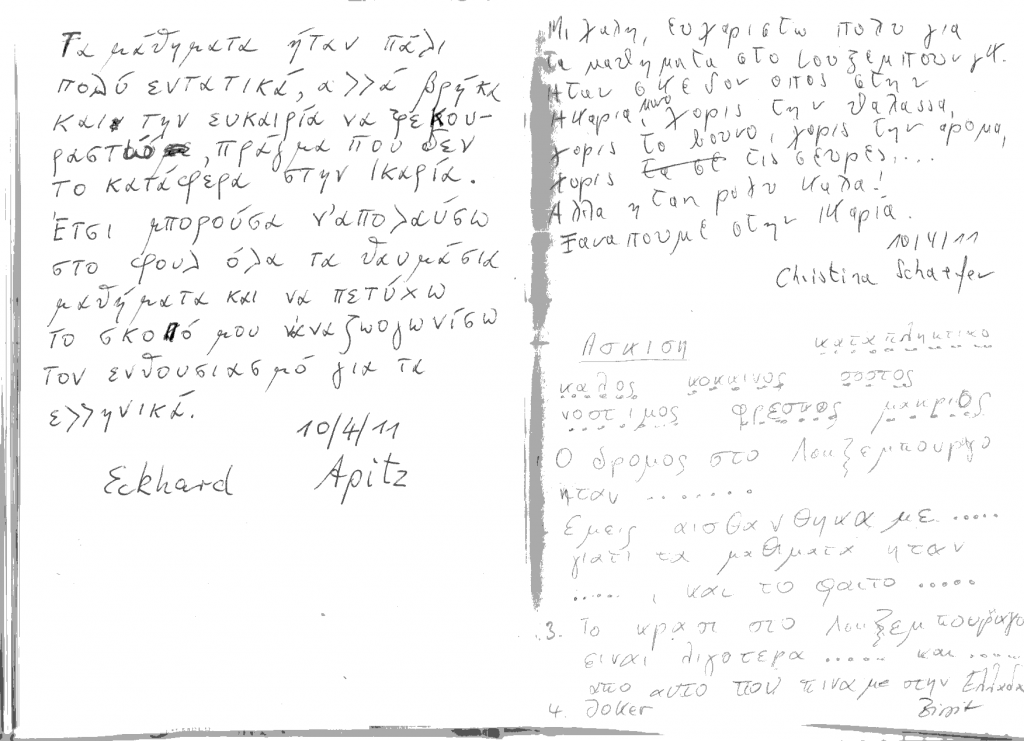 Τα μάθηματα ήταν πάλι
πολύ εντατικά, αλλά βρήκα
και την ευκαιρία να ξεκου-
ραστώ, πράγμα που δεν
το κατάφερα στην Ικαρία.
Έτσι μπορούσα ν'απολαύσω
στο φουλ όλα τα θαυμάσια
μαθήματα και να πετύχω
το σκοπό μου να αναζωογωνίσω
τον ενθουσιασμό για τα
ελληνικά.
10/4/11
Eckhard Apitz
Μιχαλη, ευχαριστω πολυ για
τα μαθηματα στο
Ηταν σχεδον οπος στην
Ικαρια, μονο χορις την θαλασσα,
χορις το βουνο, χορις την αρομα,
χορις τα σε τις σευρες,...
Αλλα η ταν πολυ καλα!
Ξαναπουμε στην Ικαρία.
10/4/11
Christina Schaefer
Ασκιση καταπληκτικο
καλος κοκκινος
νοστιμος φρεσκος μακριος
Ο δρομος στο Λουξεμπουργο
ηταν ........
Εμεις αισθανθηκαμε .....
γιατι τα μαθιματα ηταν
....., και το φαιτο .....
3. Το κρασι στο Λουξεμπουργο
ειναι λιγοτερο ..... και .....
απο αυτο που πιναμε στην Ελλαδα
4. Joker Birgit